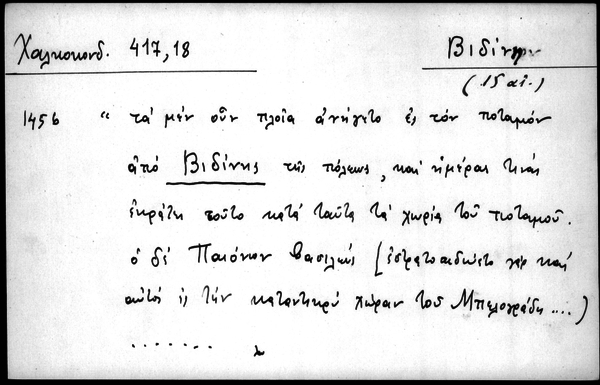 Χαλκοκονδ. 417,18
Βιδίνην
(15 αἰ.)
1456 “ τὰ μὲν οὖν πλοῖα ἀνήγετο ἐς τὸν ποταμὸν
ἀπὸ Βιδίνης τῆς πόλεως, καὶ ἡμέρας τινὰς
ἐκράτει τοῦτο κατὰ ταῦτα τὰ χωρία τοῦ ποταμοῦ.
ὁ δὲ Παιόνων βασιλεὺς (ἐστρατοπεδεύετο γὰρ καὶ
αὐτὸς ἐς τὴν καταντικρὺ χώραν τοῦ Μπελογράδη ....)
. . . . . . .